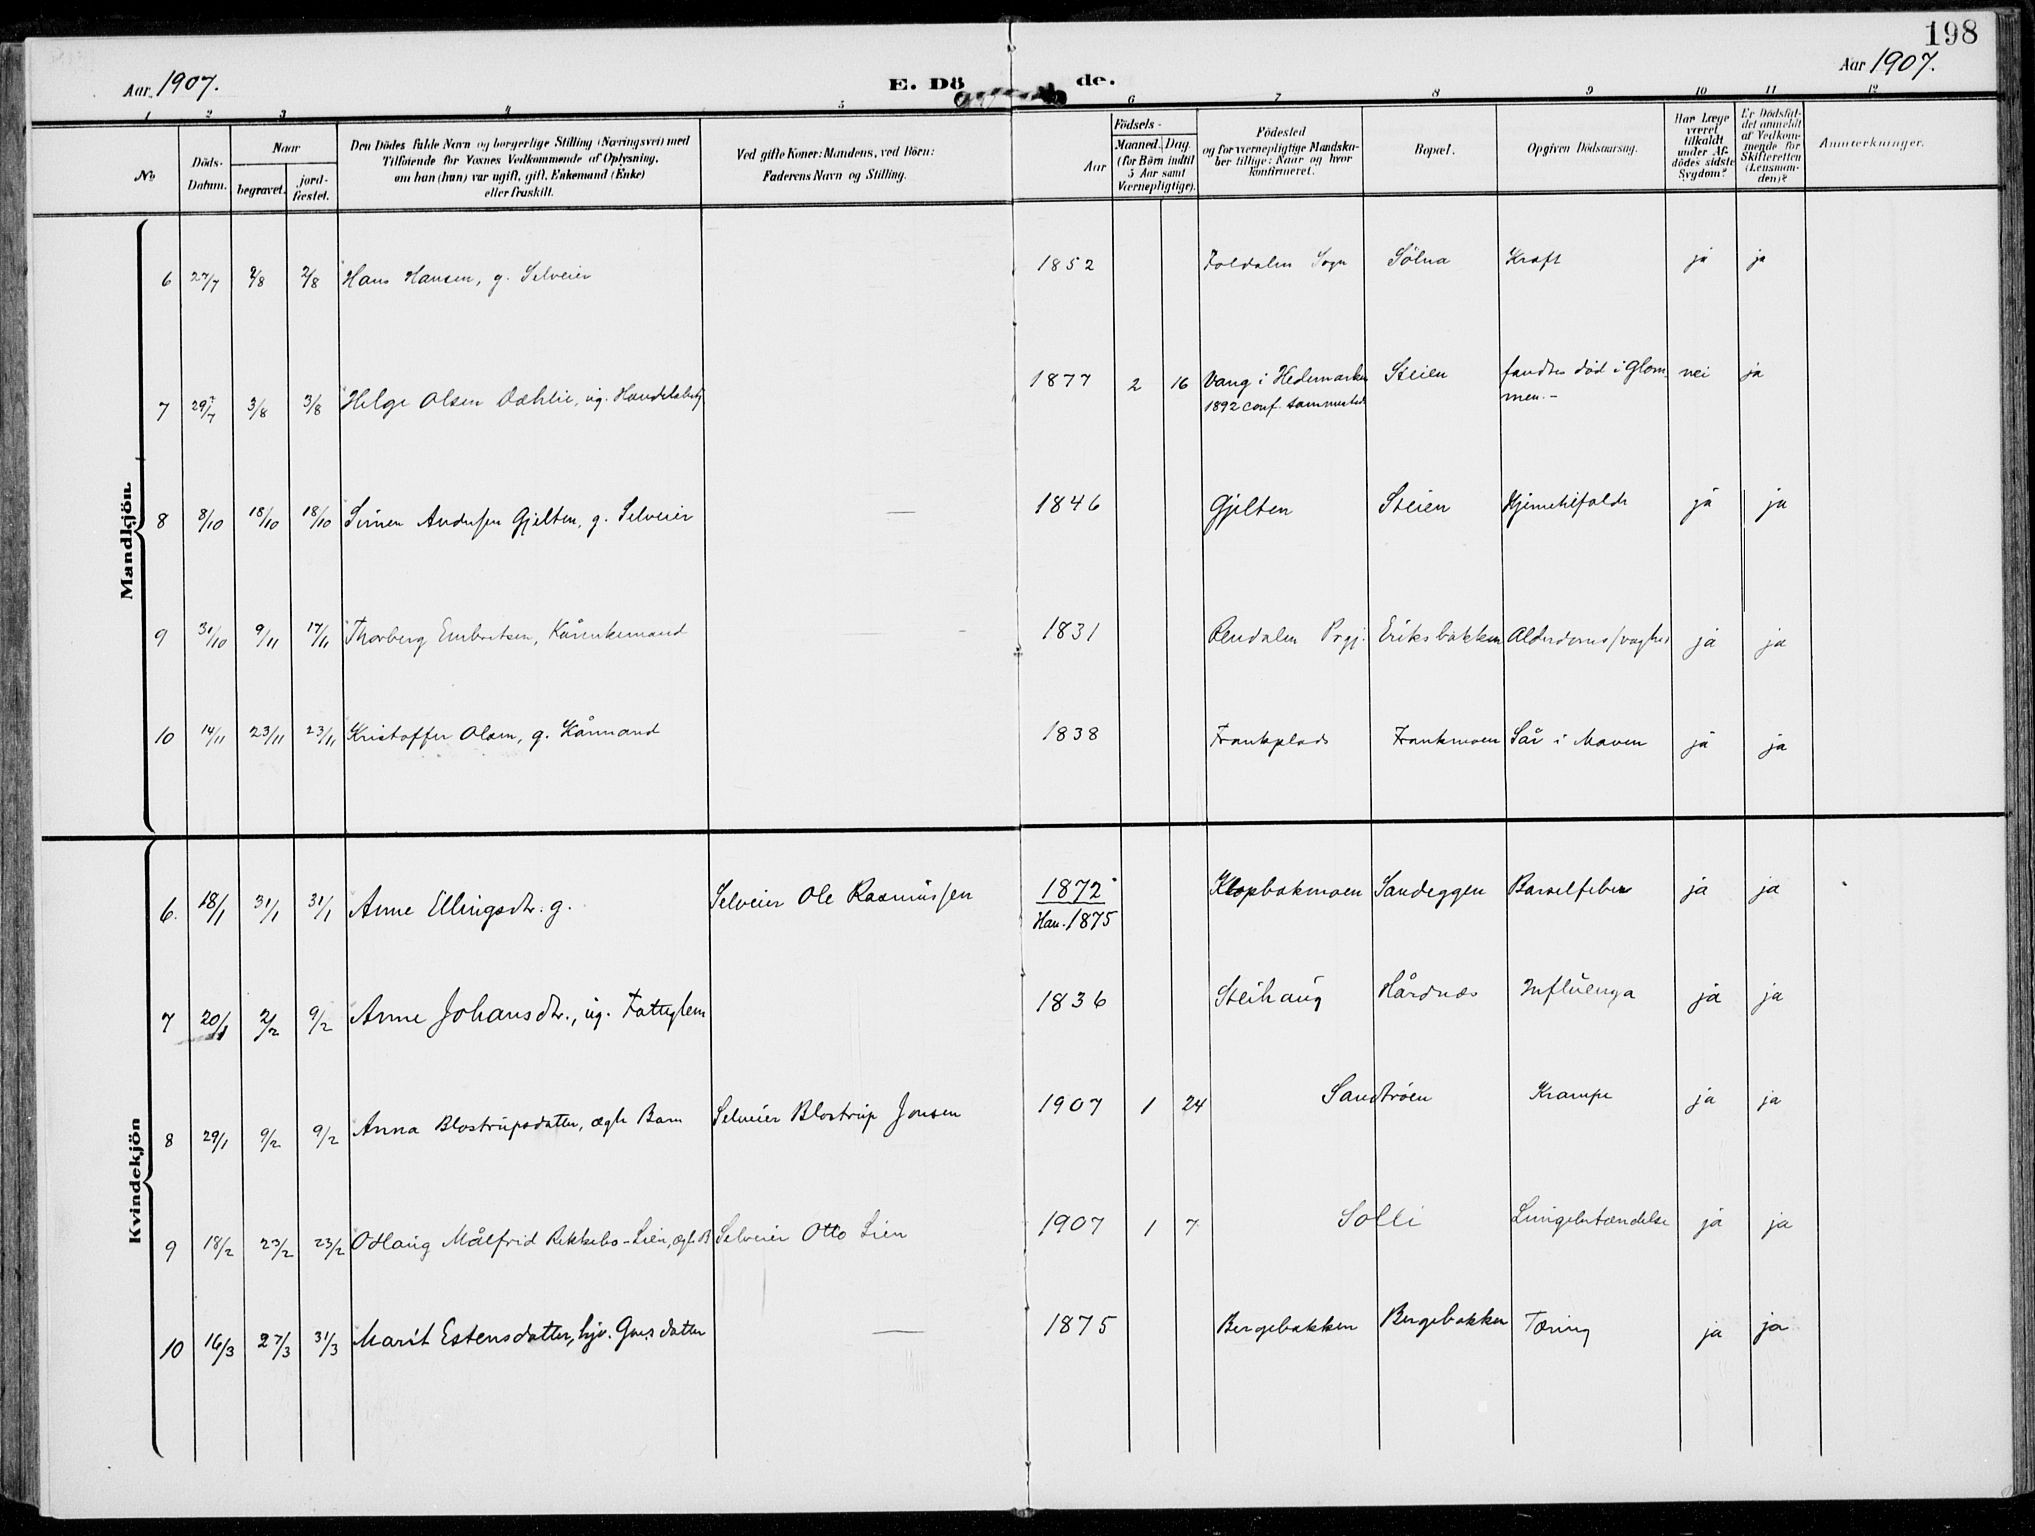 198
Aar 1907.
E. Dö de.
Aar 1907.
1 2 3 4 5 6 7 8 9 10 11 12
No
Döds-
Datum.
Naar
begravet.
jord-
fæstet.
Den Dödes fulde Navn og borgerlige Stilling (Næringsvei) med
Tilföiende for Voxnes Vedkommende af Oplysning,
om han (hun) var ugift, gift, Enkemand (Enke)
eller fraskilt.
Ved gifte Koner: Mandens, ved Börn:
Faderens Navn og Stilling.
Födsels-
Aar
Maaned.
Dag.
(for Börn indtil
5 Aar samt
Værnepligtige).
Födested
og for værnepligtige Mandska-
ber tillige: Naar og hvor
konfirmeret.
Bopæl.
Opgiven Dödsaarsag.
Har Læge
været
tilkaldt
under Af-
dödes sidste
Sygdom?
Er Dödsfal-
det anmeldt
af Vedkom-
mende for
Skifteretten
(Lensman-
den)?
Anmærkninger.
Mandkjön.
6 27/7 2/8 2/8 Hans Hansen, g. Selveier 1852 Foldalen Sogn Sölna Kræft ja ja
7 29/7 3/8 3/8 Helge Olsen Dæhlie, ug. 1877 2 16 Vang i Hedemarken Steien fandtes död i Glom- nei ja
1892 conf. sammested men.-
8 8/10 18/10 18/10 Simen Andersen Gjelten, g. Selveier — 1846 Gjelten Steien ja ja
9 31/10 9/11 17/11 Thorberg Embretsen, Kårenkemand — 1831 Rendalen Prgj. Eriksbakken Alderdomssvaghed ja ja
10 14/11 23/11 23/11 Kristoffer Olsen, g. Kårmand 1838 Frankplads Frankmoen Sår i Maven ja ja
Kvindekjön
6. 18/1 31/1 31/1 Anne Ellingsdtr. g. Selveier Ole Rasmussen 1872 Klopbakmoen Sandeggen Barselfeber ja ja
Han. 1875
7 20/1 2/2 9/2 Anne Johansdtr., ug. Fattiglem 1836 Steihaug Hårdnæs Influenza ja ja
8 29/1 9/2 9/2 Anna Blostrupsdatter, ægte Barn Selveier Blostrup Jonsen 1907 1 24 Sandtrøen Krampe ja ja
9 18/2 23/2 23/2 Odlaug Målfrid Rekkebo-Lien, ægte B Selveier Otto Lien 1907 1 7 Solli Lungebetændelse ja ja
10 16/3 27/3 31/3 Marit Estensdatter, hjv. Gaardatter — 1875 Bergebakken Bergebakken Tæring ja ja